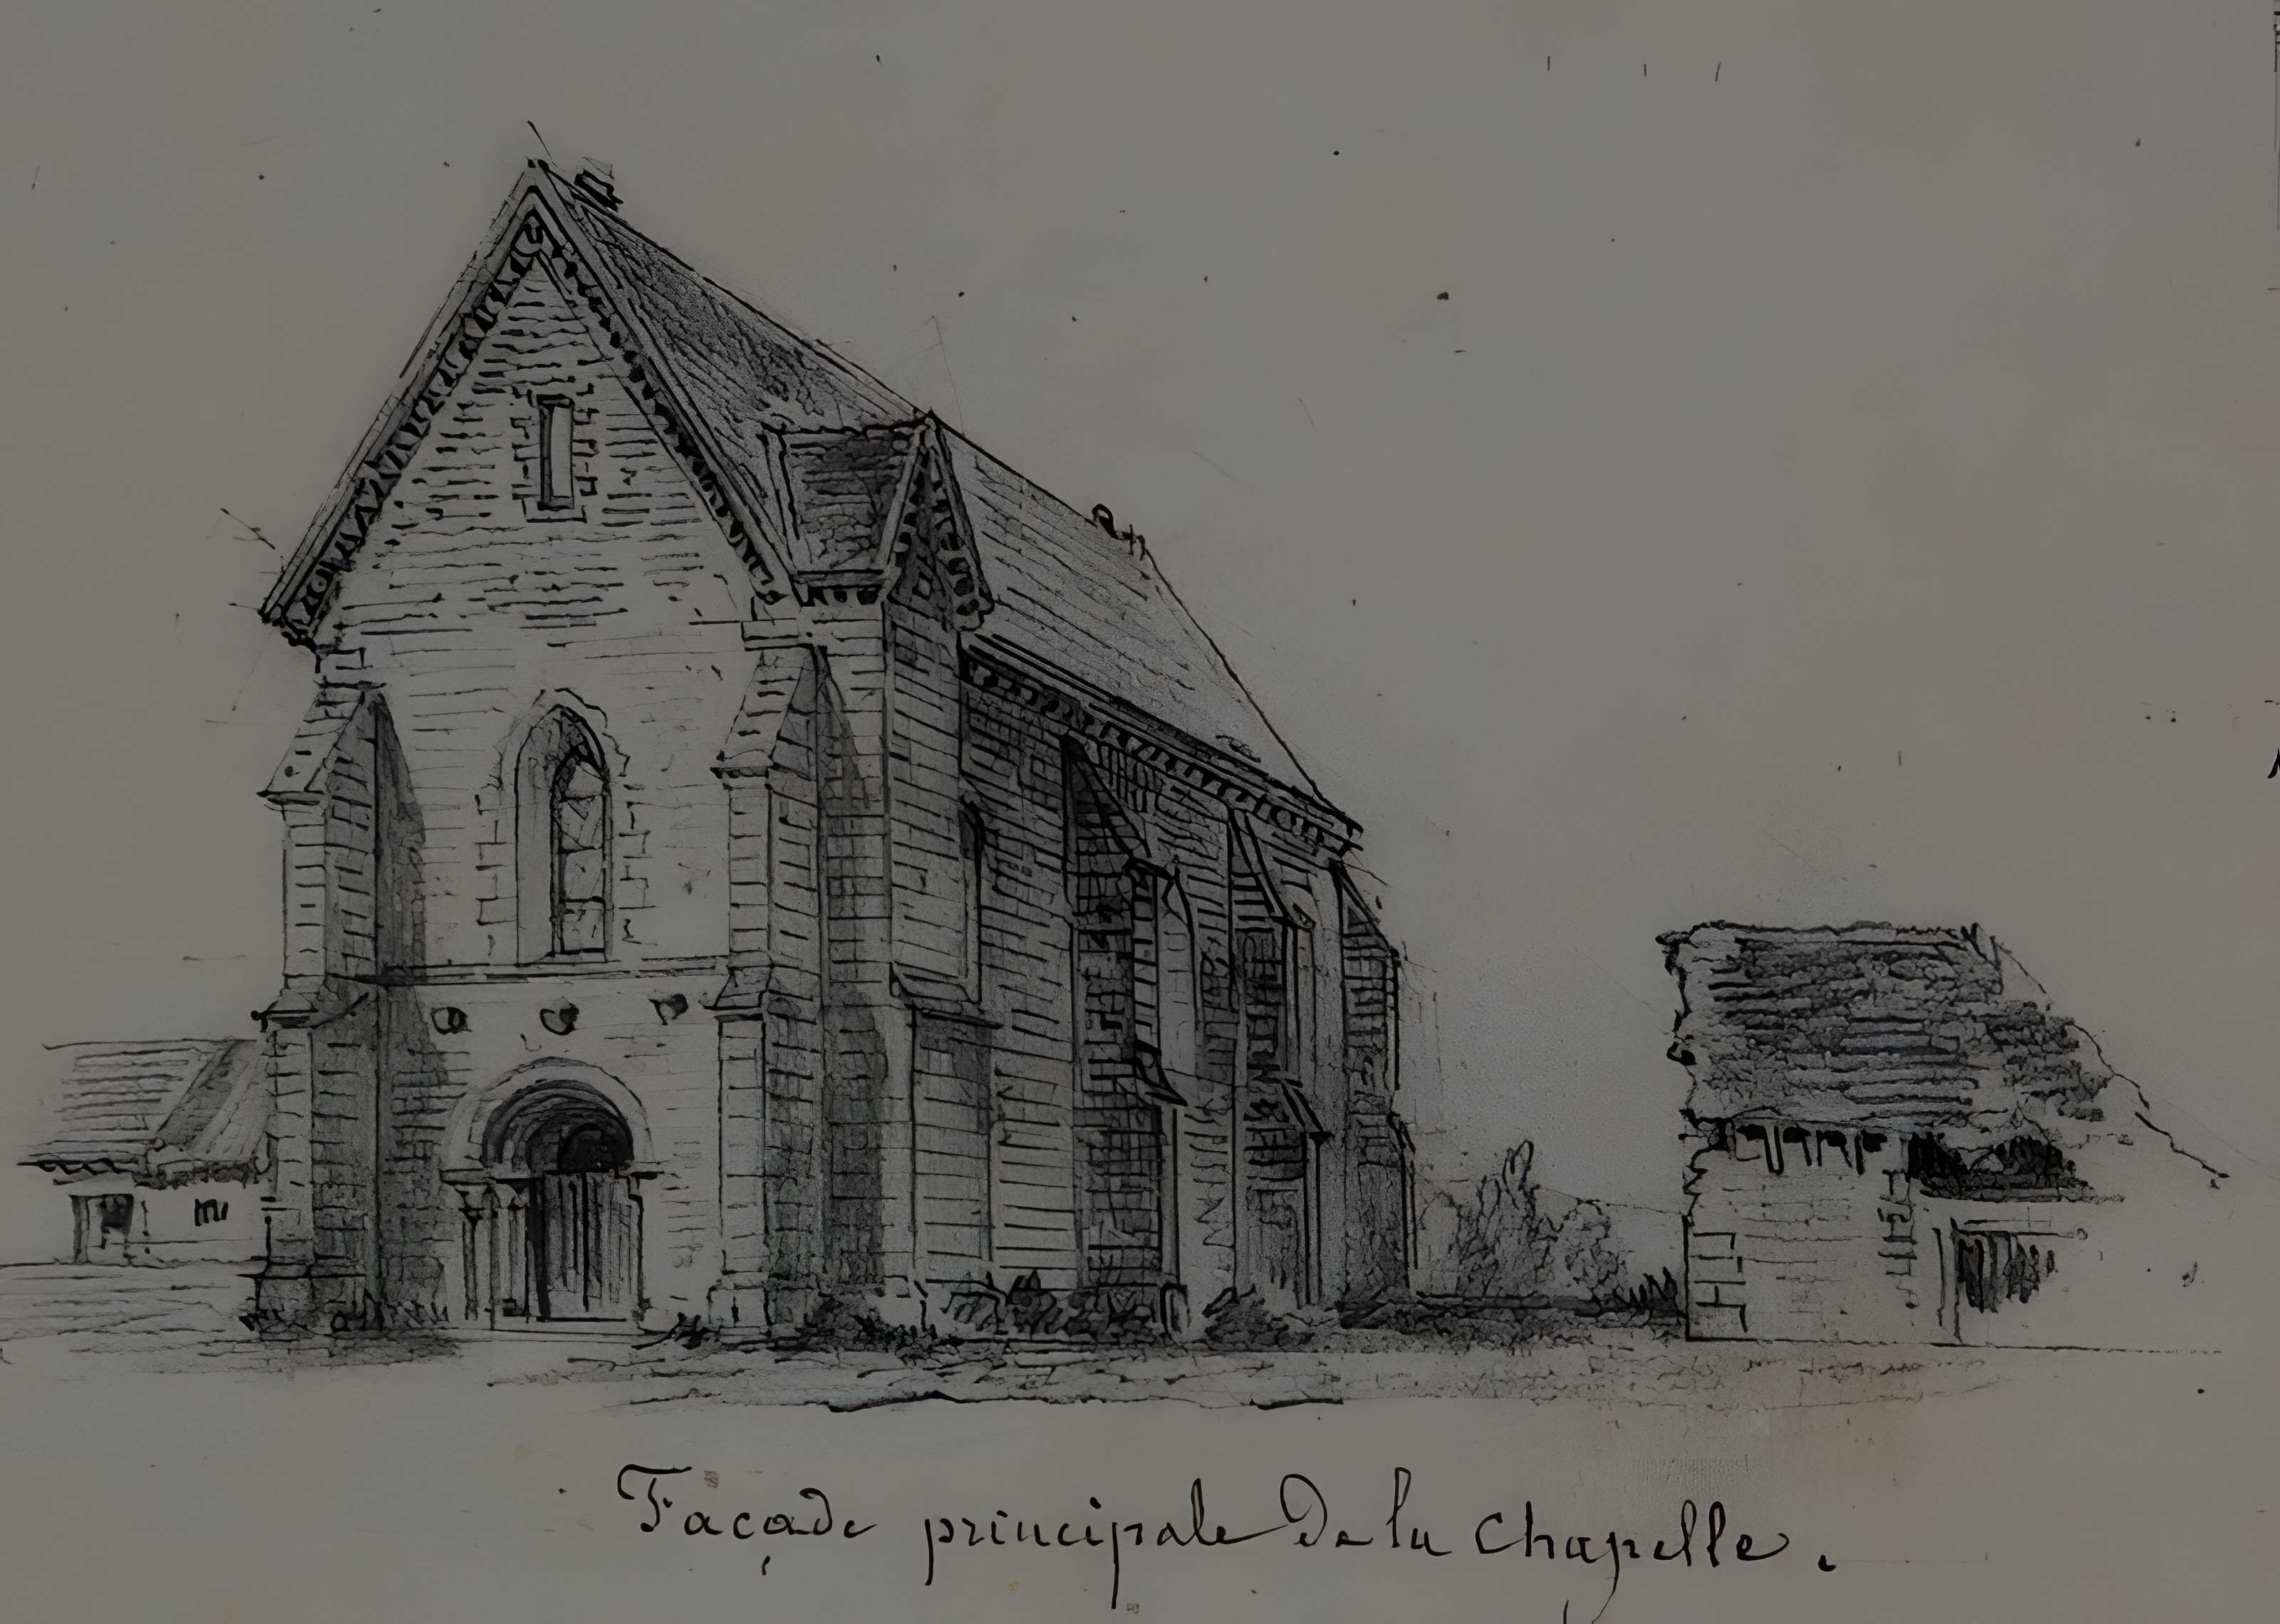 Façade principale de la chapelle.